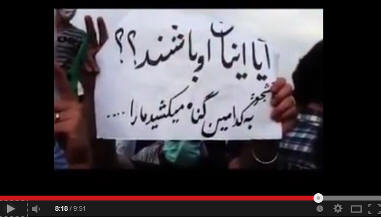 آیا اینان اوباشند؟؟
به کدامین گناه میکشید ما را ....
8:18 / 9:51